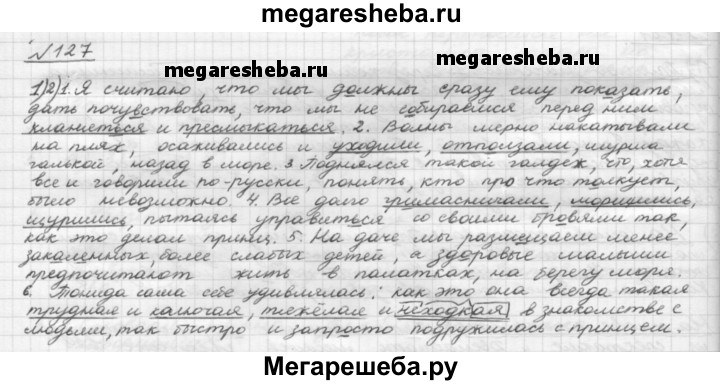 megaresheba.ru
№127
megaresheba.ru
1)2)1. Я считаю, что мы должны сразу ему показать,
дать почувствовать, что мы не собираемся перед ним
кланяться и пресмыкаться. 2. Волны мерно накатывали
на пляж, осаживались и уходили, отползали, шурша
галькой, назад в море. 3 Поднялся такой галдёж, что, хотя
все и говорили по-русски, понять, кто про что толкует,
было невозможно. 4. Все долго гримасничали, морщились,
щурились, пытаясь управиться со своими бровями так,
как это делал принц. 5. На даче мы размещаем менее
закаленных, более слабых детей, а здоровые малыши
предпочитают жить в палатках, на берегу моря.
6. Тонида сама себе удивлялась: как это она всегда такая
трудная и колючая, тяжёлая и неходкая в знакомстве с
людьми, так быстро и запросто подружилась с принцем.
Мегарешеба.ру